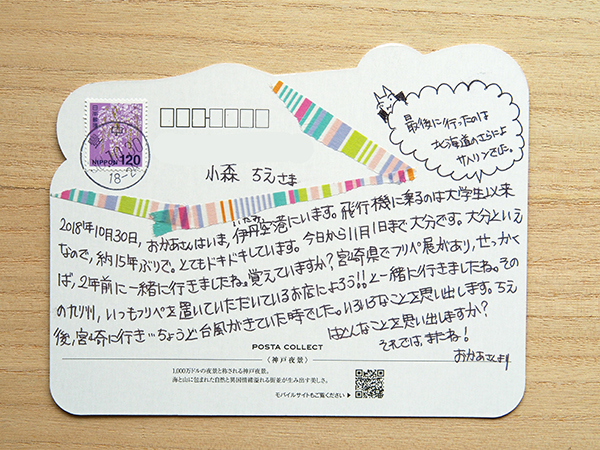 日本郵便
NIPPON 120
18-
小森 ちえさま
最後に行ったのは
北海道のさらによ
サハリンでした。
2018年10月30日, おかあさんはいま, 伊丹空港にいます。飛行機に乗るのは大学生以来
いたみ
なので, 約15年ぶりで。とてもドキドキしています。今日から11月1日まで大分です。大分といえ
ば, 2年前に一緒に行きましたね。覚えていますか? 宮崎県でフリペ展があり, せっかく
の九州, いつもフリペを置いていただいているお店によろう!!と一緒に行きましたね。その
後, 宮崎に行き…ちょうど台風がきていた時でした。いろいろなことを思い出します。ちえ
はどんなことを思い出しますか?
それでは, またね!
おかあさんより
POSTA COLLECT
〈神戸夜景〉
1,000万ドルの夜景と称される神戸夜景。
海と山に包まれた自然と異国情緒溢れる街並が生み出す美しさ。
モバイルサイトもご覧ください▶